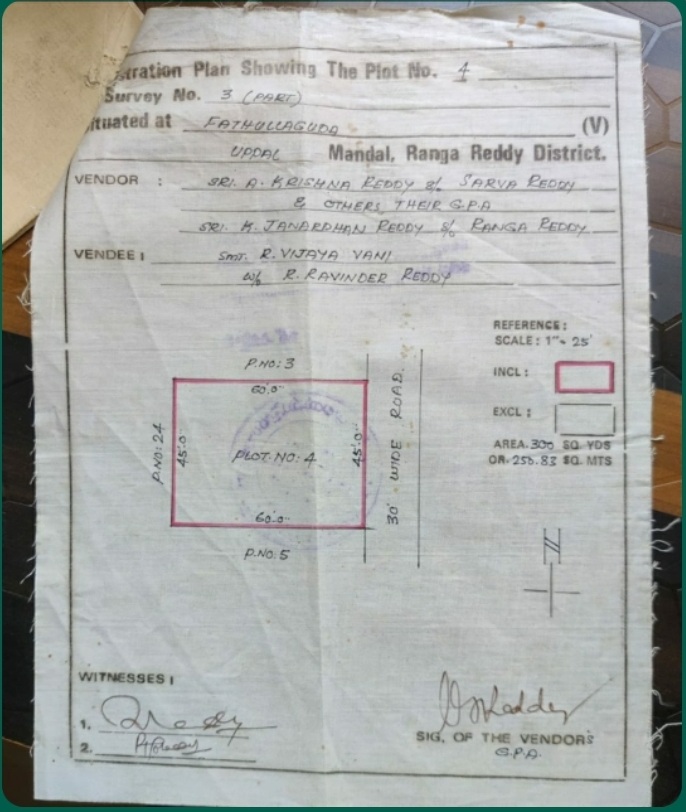 stration Plan Showing The Plot No. 4
Survey No. 3 (PART)
ituated at FATHULLAGUDA (V)
UPPAL Mandal, Ranga Reddy District.
VENDOR : SRI. A. KRISHNA REDDY S/o SARVA REDDY
& OTHERS THEIR G.P.A
SRI. K. JANARDHAN REDDY S/o RANGA REDDY
VENDEE : SMT. R. VIJAYA VANI
W/o R. RAVINDER REDDY
REFERENCE :
SCALE : 1" = 25'
INCL :
EXCL :
AREA. 300 SQ. YDS
OR. 250.83 SQ. MTS
P.NO: 3
60'.0"
P.NO: 24
45'.0"
PLOT. NO: 4
45'.0"
30' WIDE ROAD.
60'.0"
P.NO: 5
N
WITNESSES :
1.
2.
SIG. OF THE VENDOR'S
G.P.A.